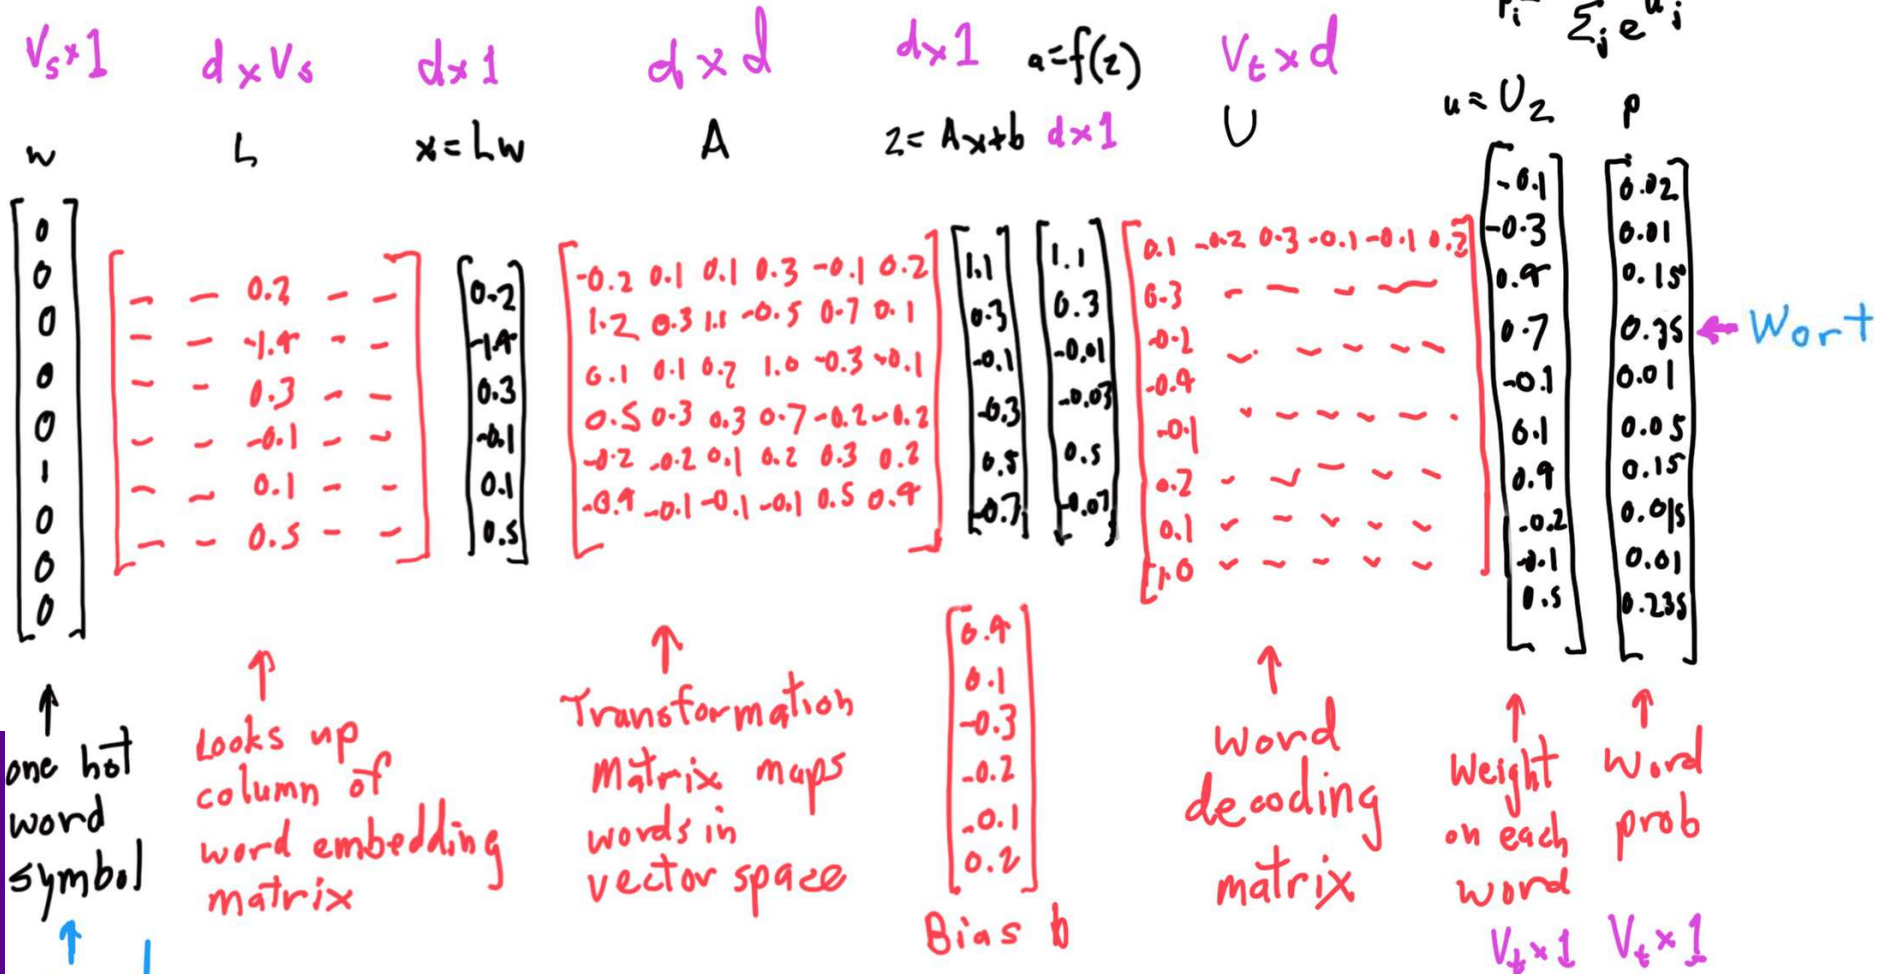 Vs×1 d×Vs d×1 d×d d×1 a=f(z) Vt×d
Σj e^uj
w L x=Lw A z=Ax+b d×1 U u=Uz p
[0 0 0 0 0 1 0 0 0]
[– – 0.2 – –
– – -1.4 – –
– – 0.3 – –
– – -0.1 – –
– – 0.1 – –
– – 0.5 – –]
[0.2 -1.4 0.3 -0.1 0.1 0.5]
[-0.2 0.1 0.1 0.3 -0.1 0.2
1.2 0.3 1.1 -0.5 0.7 0.1
0.1 0.1 0.2 1.0 -0.3 -0.1
0.5 0.3 0.3 0.7 -0.2 -0.2
-0.2 -0.2 0.1 0.2 0.3 0.2
-0.4 -0.1 -0.1 -0.1 0.5 0.4]
[1.1 0.3 -0.1 -0.3 0.5 -0.7]
[1.1 0.3 -0.01 -0.03 0.5 -0.07]
[0.1 -0.2 0.3 -0.1 -0.1 0.2
0.3
-0.2
-0.4
-0.1
0.2
0.1
1.0]
[-0.1 -0.3 0.4 0.7 -0.1 0.1 0.4 -0.2 -0.1 0.5]
[0.02 0.01 0.15 0.35 0.01 0.05 0.15 0.015 0.01 0.235]
← Wort
one hot
word
symbol
Looks up
column of
word embedding
matrix
Transformation
Matrix maps
words in
vector space
[0.4 0.1 -0.3 -0.2 -0.1 0.2]
Bias b
word
decoding
matrix
Weight
on each
word
Vt×1
Word
prob
Vt×1